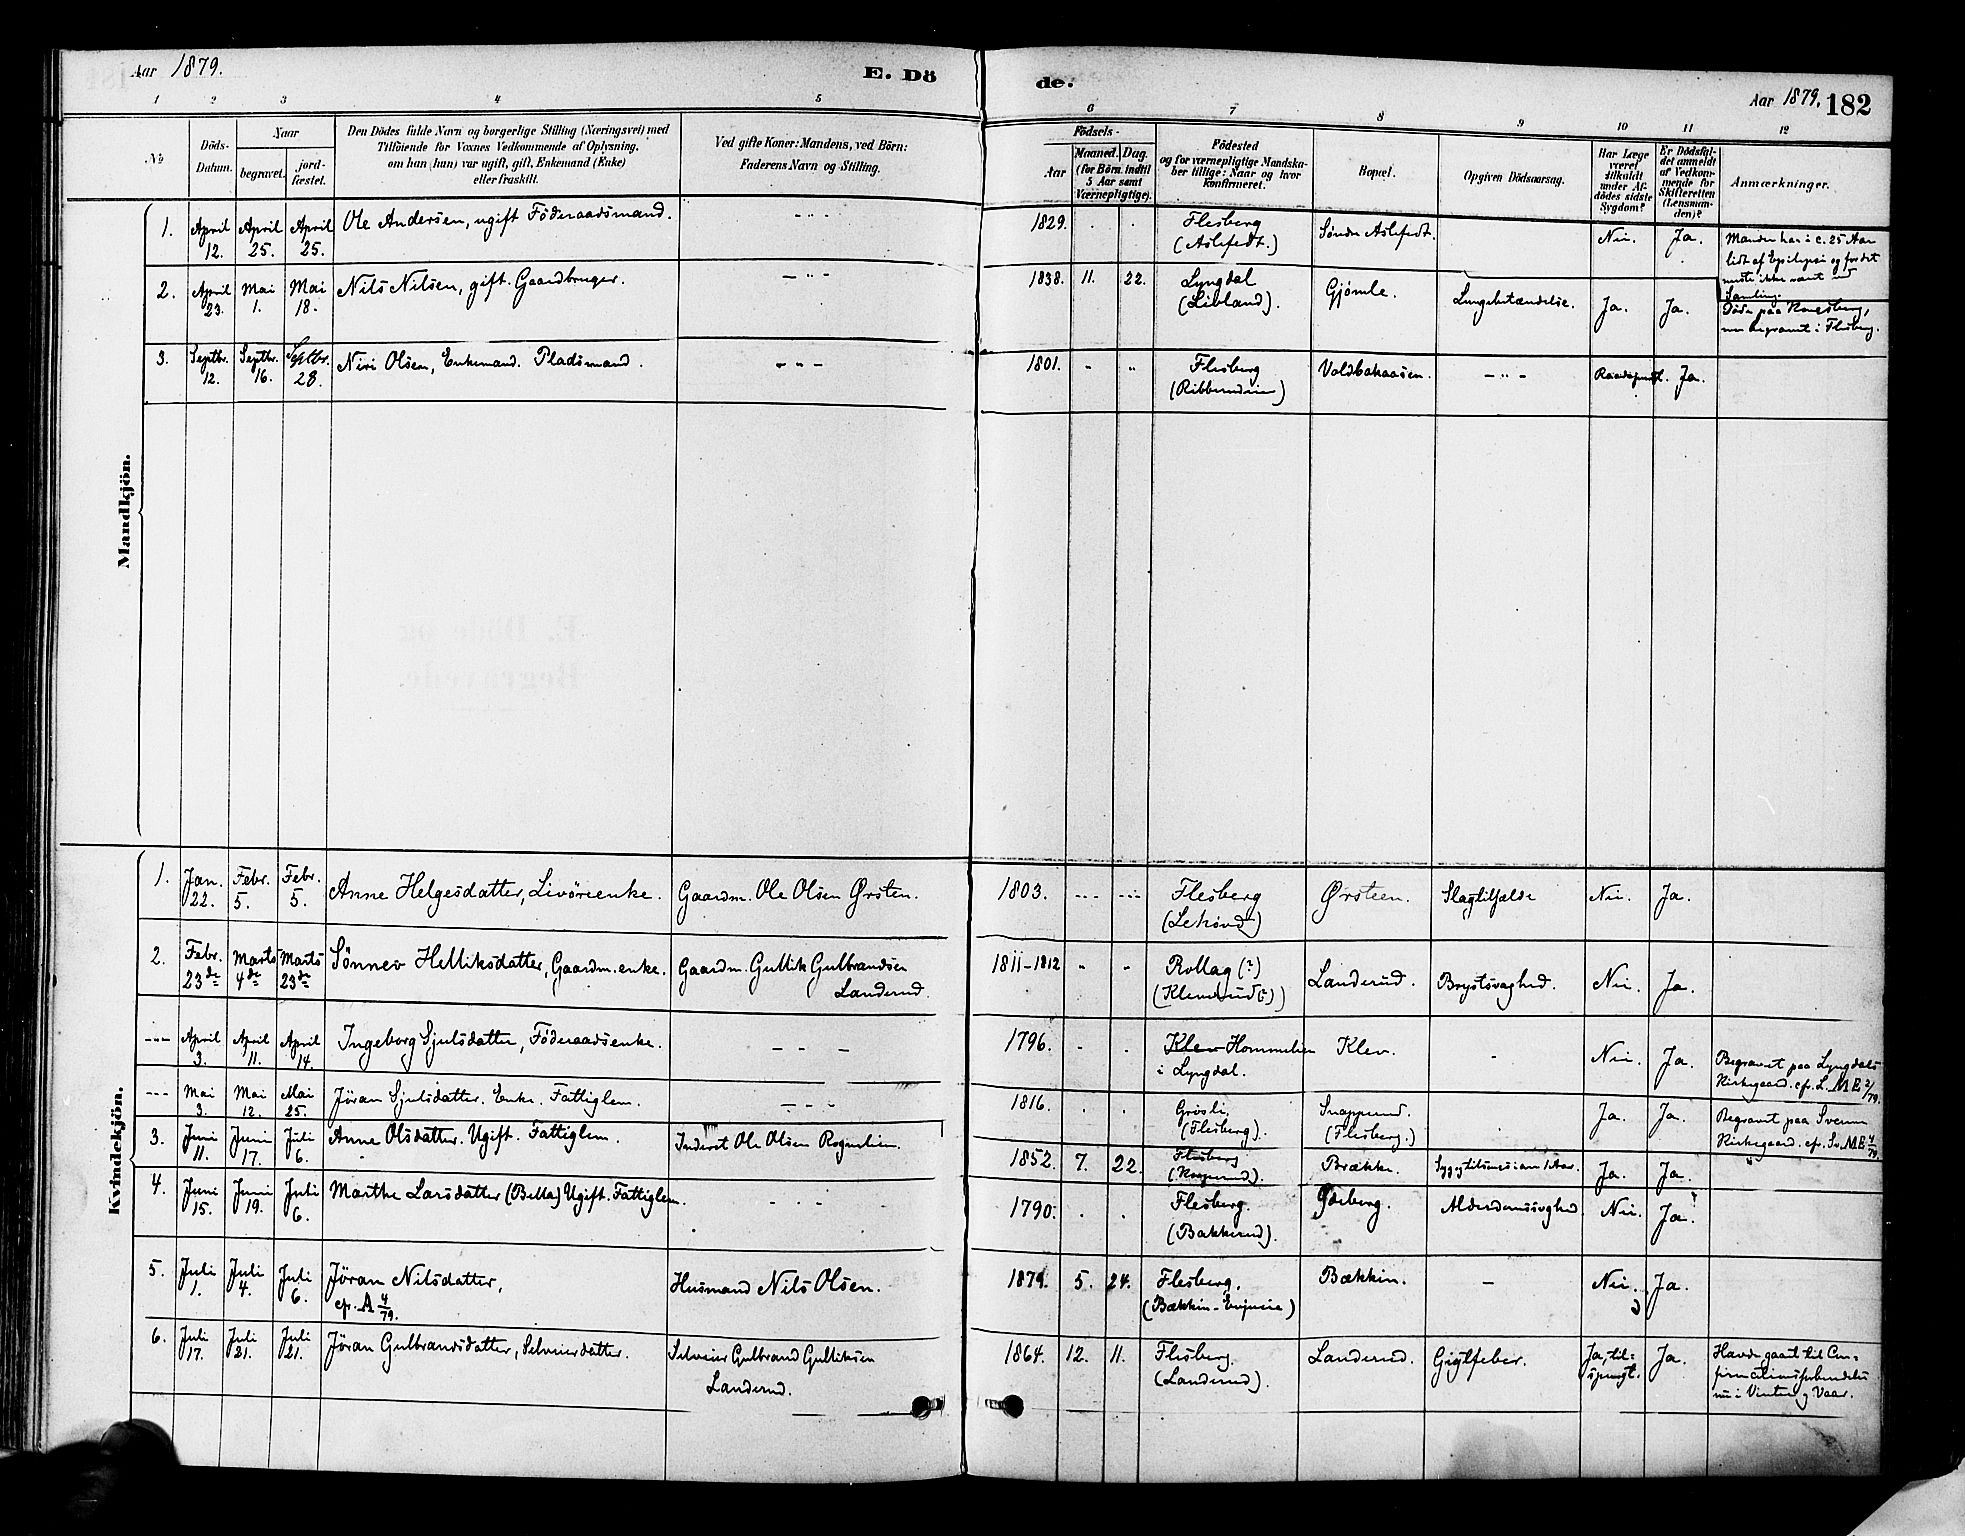 Aar 1879.
E. Dö
de.
Aar 1879.
182
1 2 3 4 5 6 7 8 9 10 11 12
No
Döds-Datum.
Naar
begravet.
jord-fæstet.
Den Dödes fulde Navn og borgerlige Stilling (Næringsvei) med
Tilföiende for Voxnes Vedkommende af Oplysning,
om han (hun) var ugift, gift, Enkemand (Enke)
eller fraskilt.
Ved gifte Koner: Mandens, ved Börn:
Faderens Navn og Stilling.
Födsels-
Aar
Maaned. Dag.
(for Börn indtil
5 Aar samt
Værnepligtige).
Födested
og for værnepligtige Mandska-
ber tillige: Naar og hvor
konfirmeret.
Bopæl.
Opgiven Dödsaarsag.
Har Læge
været
tilkaldt
under Af-
dödes sidste
Sygdom?
Er Dödsfal-
det anmeldt
af Vedkom-
mende for
Skifteretten
(Lensman-
den)?
Anmærkninger.
Mandkjön.
1. April 12. April 25. April 25. Ole Andersen, ugift Föderaadsmand. - " - 1829. . . Flesberg (Aslefedt.) Søndre Aslefedt. Nei. Ja. Manden har i c. 25 Aar
lidt af Epilepsi og fordet
meste ikke været ved
Samling.
2. April 23. Mai 1. Mai 18. Nils Nilsen, gift. Gaardbruger. - " - 1838. 11. 22. Lyngdal (Livland). Gjömle. Lungebetændelse. Ja. Ja. Döde paa Kongsberg,
men begravet i Flesberg.
3. Septbr. 12. Septbr. 16. Septbr. 28. Niri Olsen, Enkemand. Pladsmand. - " - 1801. - " Flesberg Voldbakaasen. - " - Raadspurgt. Ja.
Kvindekjön.
1. Jan. 22. Febr. 5. Febr. 5. Anne Helgesdatter, Livöreenke. Gaardm. Ole Olsen Ørsten. 1803. --- --- Flesberg (Lekövd) Ørsteen. Slagtilfælde Nei. Ja.
2. Febr. 23de Marts 4de Marts 23de Sönnev Helliksdatter, Gaardm. enke. Gaardm. Gullik Gulbrandsen
Landerud. 1811-1812 " " Rollag (?) Landerud. Brystsvaghed. Nei. Ja.
--- April 3. April 11. April 14. Ingeborg Sjulsdatter, Föderaadsenke. - - - 1796. . . Klev Hommelien
i Lyngdal. Klev. - Nei. Ja. Begravet paa Lyngdals
Kirkegaard. cf. L. M E 2/79.
--- Mai 3. Mai 12. Mai 25. Jöran Sjulsdatter. Enke. Fattiglem. - - - 1816. . . Grösli. (Flesberg). Snappund. (Flesberg.) . Ja. Ja. Begravet paa Svenne
Kirkegaard. cf. Sv. M E 4/79
3. Juni 11. Juni 17. Juli 6. Anne Olsdatter. Ugift. Fattiglem. Inderst Ole Olsen Rognelien. 1852. 7. 22. Flesberg Brække. Ja. Ja.
4. Juni 15. Juni 19. Juli 6. Marthe Larsdatter (Bella) Ugift. Fattiglem. - - 1790. . . Flesberg. (Bakkerud). Alderdomssvaghed. Nei. Ja.
5. Juli 1. Juli 4. Juli 6. Jöran Nilsdatter,
cf. A 4/79. Husmand Nils Olsen. 1879. 5. 24. Flesberg. Bækkin. - Nei. Ja.
6. Juli 17. Juli 21. Juli 21. Jöran Gulbrandsdatter, Selveierdatter. Selveier Gulbrand Gulliksen
Landerud. 1864. 12. 11. Flesberg. (Landerud). Landerud. Gigtfeber. Ja, til-
spurgt. Ja. Havde gaaet til Con-
firmationsforberedelse
nu i Vinter og Vaar.